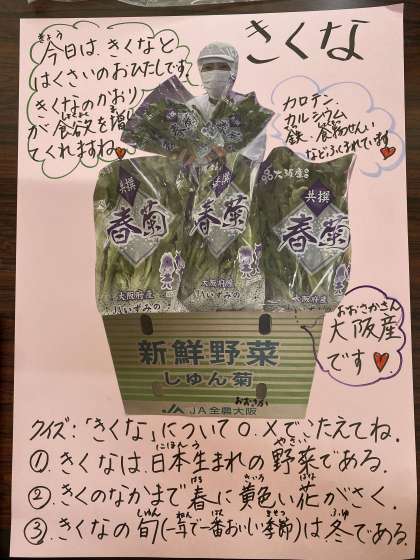 きくな
今日は、きくなと
はくさいのおひたしです。
きくなのかおり
が食欲を増し
てくれますね。
カロテン、
カルシウム
鉄、食物せんい
などふくまれています
共撰
春菊
大阪府産
春菊
大阪府産
いずみの
大阪産
共撰
春菊
大阪府産
おおさかさん
大阪産
です
新鮮野菜
しゅん菊
JA全農大阪
おおさか
クイズ:「きくな」について○、×でこたえてね。
①、きくなは、日本生まれの野菜である。
②、きくのなかまで春に黄色い花がさく。
③、きくなの旬(一年で一番おいしい季節)は冬である。